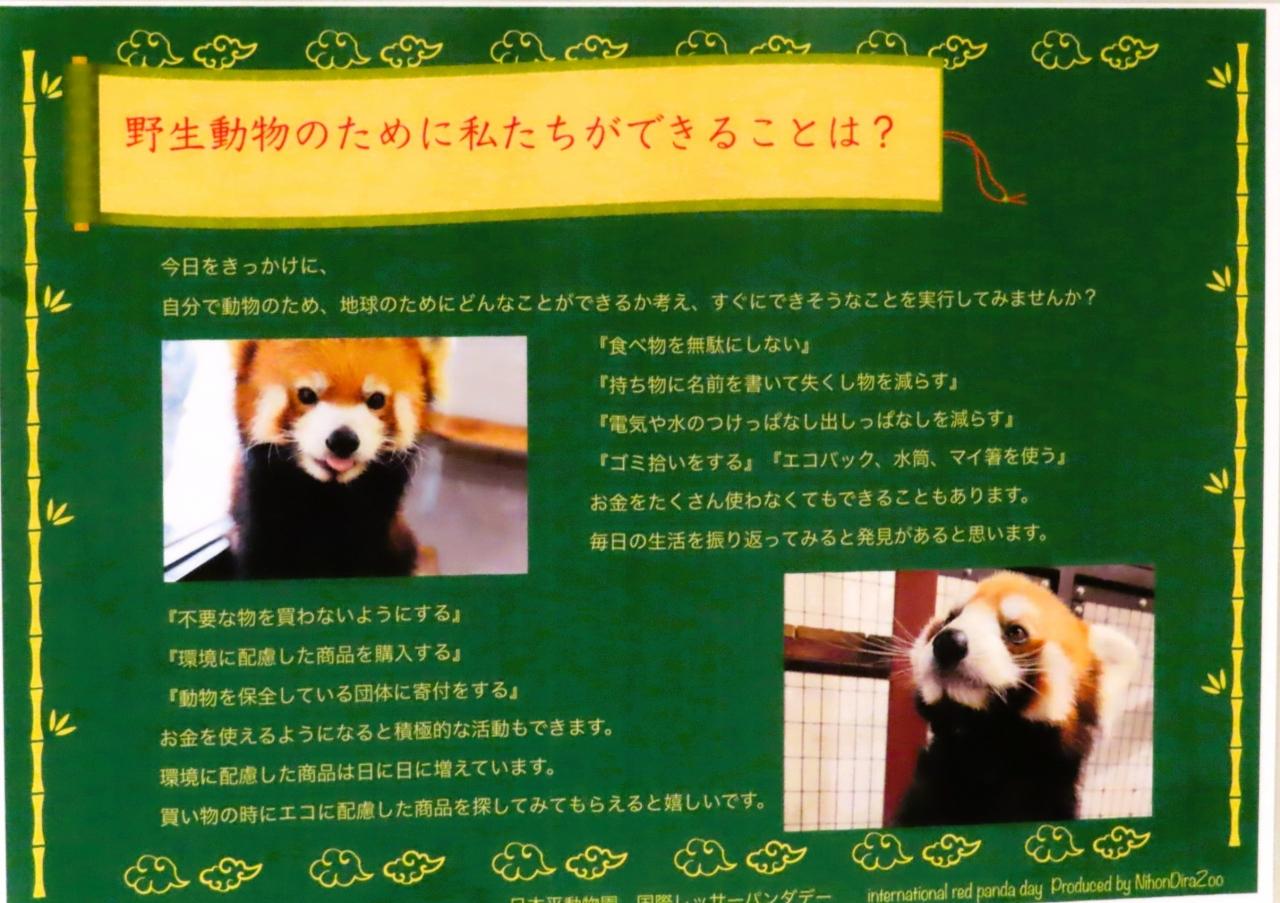 野生動物のために私たちができることは？
今日をきっかけに、
自分で動物のため、地球のためにどんなことができるか考え、すぐにできそうなことを実行してみませんか？
『食べ物を無駄にしない』
『持ち物に名前を書いて失くし物を減らす』
『電気や水のつけっぱなし出しっぱなしを減らす』
『ゴミ拾いをする』『エコバック、水筒、マイ箸を使う』
お金をたくさん使わなくてもできることもあります。
毎日の生活を振り返ってみると発見があると思います。
『不要な物を買わないようにする』
『環境に配慮した商品を購入する』
『動物を保全している団体に寄付をする』
お金を使えるようになると積極的な活動もできます。
環境に配慮した商品は日に日に増えています。
買い物の時にエコに配慮した商品を探してみてもらえると嬉しいです。
日本平動物園 国際レッサーパンダデー international red panda day Produced by NihonDiraZoo